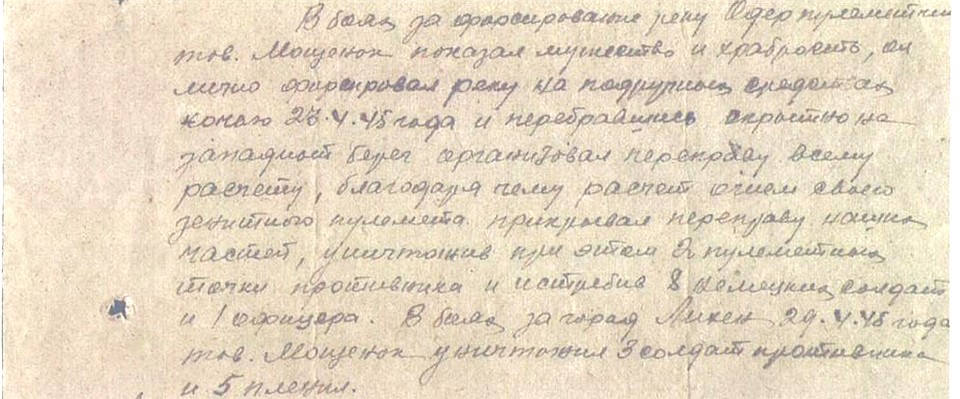 В боях за форсирование реки Одер пулеметчик
тов. Мощенок показал мужество и храбрость, он
лично форсировал реку на подручных средствах
ночью 23.4.45 года и перебравшись скрытно на
западный берег организовал переправу всему
расчету, благодаря чему расчет огнем своего
зенитного пулемета прикрывал переправу наших
частей, уничтожив при этом 2 пулеметных
точки противника и истребив 8 немецких солдат
и 1 офицера. В боях за город Лихен 29.4.45 года
тов. Мощенок уничтожил 3 солдат противника
и 5 пленил.